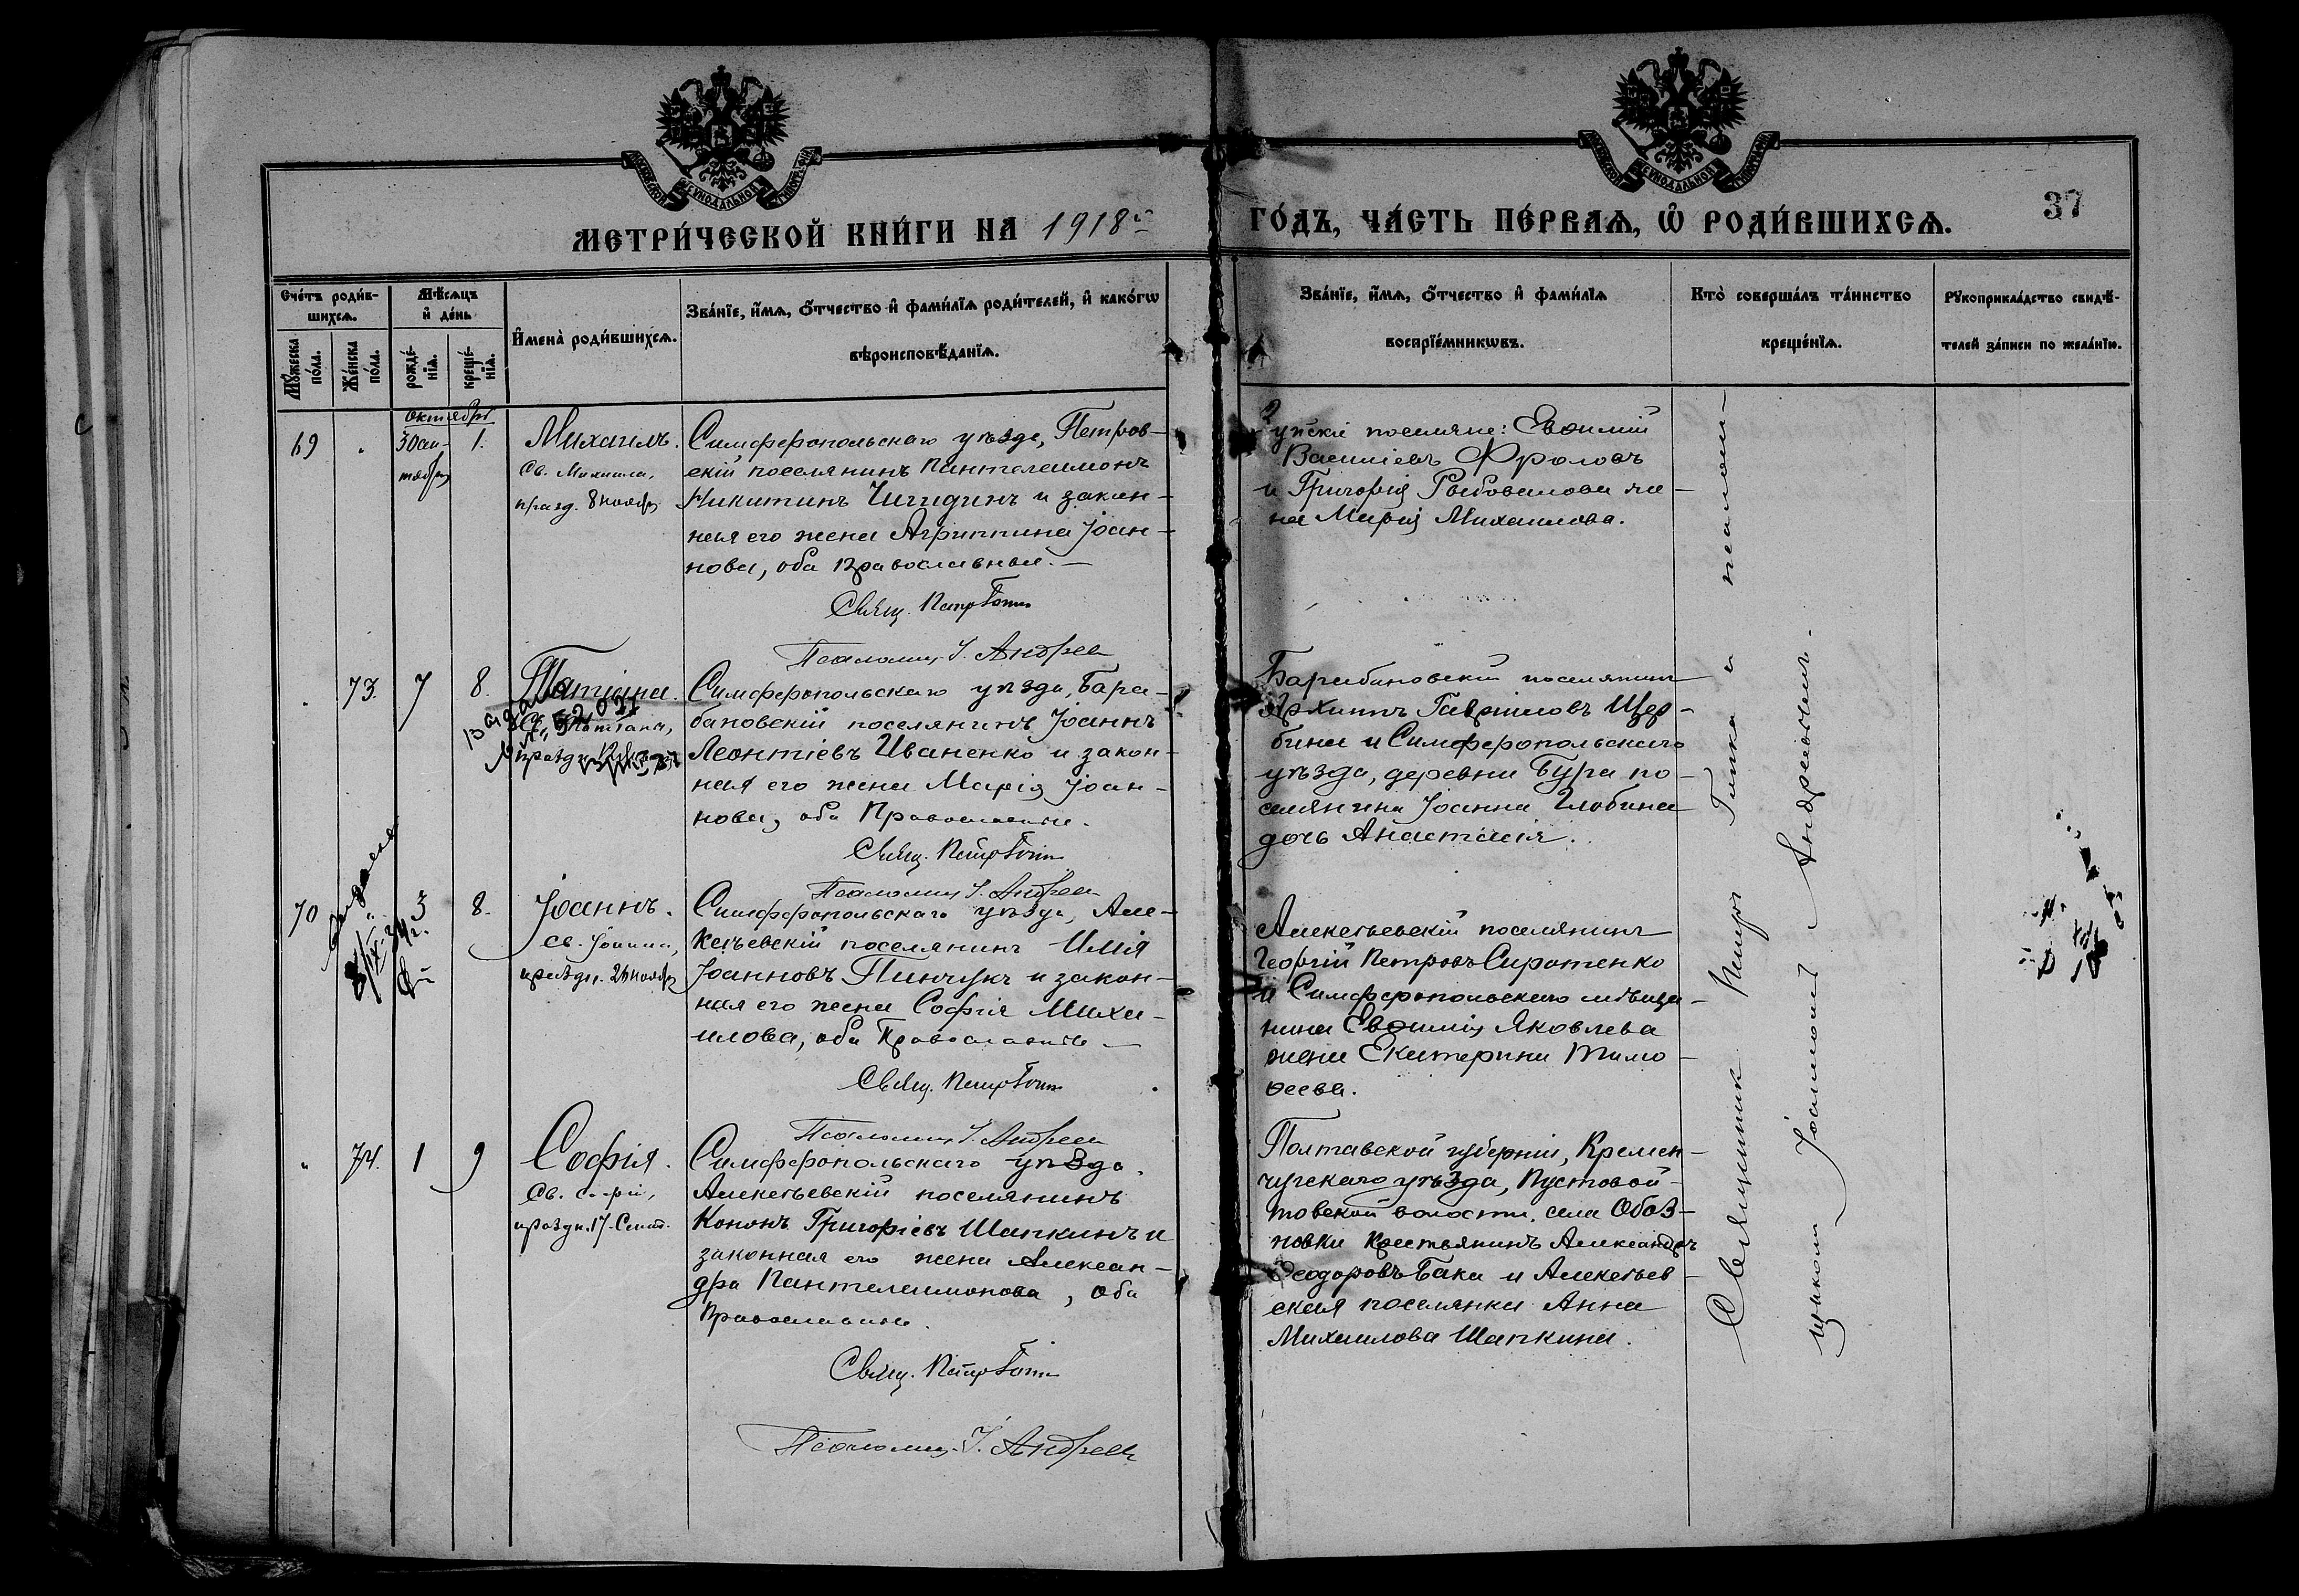 МЕТРИ́ЧЕСКОЙ КНИ́ГИ НА 1918й
ГО́ДЪ, ЧА́СТЬ ПЕ́РВАѦ, Ѡ҆ РОДИ́ВШИХСѦ.
37
Сче́тъ роди́в-
шихсѧ.
Мꙋ́жеска
по́ла.
Же́нска
по́ла.
Мѣ́сѧцъ
и҆ де́нь
рожде́-
нїѧ.
креще́-
нїѧ.
И҆мена̀ роди́вшихсѧ.
Зва́нїе, и҆́мѧ, ѻ҆́тчество и҆ фами́лїѧ роди́телей, и҆ како́гѡ
вѣроисповѣ́данїѧ.
Зва́нїе, и҆́мѧ, ѻ҆́тчество и҆ фами́лїѧ
воспрїе́мникѡвъ.
Кто̀ соверша́лъ та́инство
креще́нїѧ.
Рꙋкоприкла́дство свидѣ́-
телей за́писи по жела́нїю.
Октябрь
69
30 сен-
тября
1.
Михаилъ.
Св. Михаила,
празд. 8 ноября
Симферопольскаго уѣзда, Петров-
скій поселянинъ Пантелеимонъ
Никитинъ Чигидинъ и закон-
ная его жена Агриппина Іоан-
нова, оба православные. —
Свящ. Петр Гопин
Псаломщ. І. Андреев
поселяне: Евѳимій
Василіевъ Фроловъ
и Григорія Рыбовалова же-
на Марія Михаилова.
73.
7
8.
Татіана.
Св. Татіана,
Симферопольскаго уѣзда, Бара-
бановскій поселянинъ Іоаннъ
Леонтіевъ Иваненко и закон-
ная его жена Марія Іоан-
нова, оба Православные.
Свящ. Петр Гопин
Псаломщ. І. Андреев
Барабановскій поселянинъ
Архипъ Гавріиловъ Щер-
бина и Симферопольскаго
уѣзда, деревни Бура по-
селянина Іоанна Глобина
дочь Анастасія.
70
3
8.
Іоаннъ.
св. Іоанна,
Симферопольскаго уѣзда, Але-
ксѣевскій поселянинъ Илія
Іоанновъ Пинчукъ и закон-
ная его жена Софія Миха-
илова, оба Православные —
Свящ. Петр Гопин
Псаломщ. І. Андреев
Алексѣевскій поселянинъ
Георгій Петровъ Сиротенко
и Симферопольскаго мѣщан-
нина Евѳимія Яковлева
жена Екатерина Тимо-
ѳеева.
74.
1
9
Софія.
Св. Софіи,
праздн. 17 Сент.
Симферопольскаго уѣзда,
Алексѣевскій поселянинъ
Кононъ Григоріевъ Шапкинъ и
законная его жена Алексан-
дра Пантелеимонова, оба
Православные.
Свящ. Петр Гопин
Псаломщ. І. Андреев
Полтавской губерніи, Кремен-
чугскаго уѣзда, Пустовой-
товской волости, села Обоз-
новки крестьянинъ Александръ
Ѳеодоровъ Бака и Алексѣев-
ская поселянка Анна
Михаилова Шапкина.
Священникъ Петръ
псалом-
щикомъ Іоанномъ Андреевымъ.